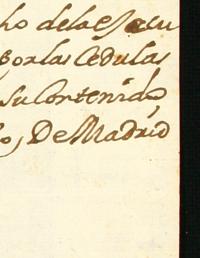 ho dela esacu
Por las Cedulas
Su Contenido,
lo, De Madrid